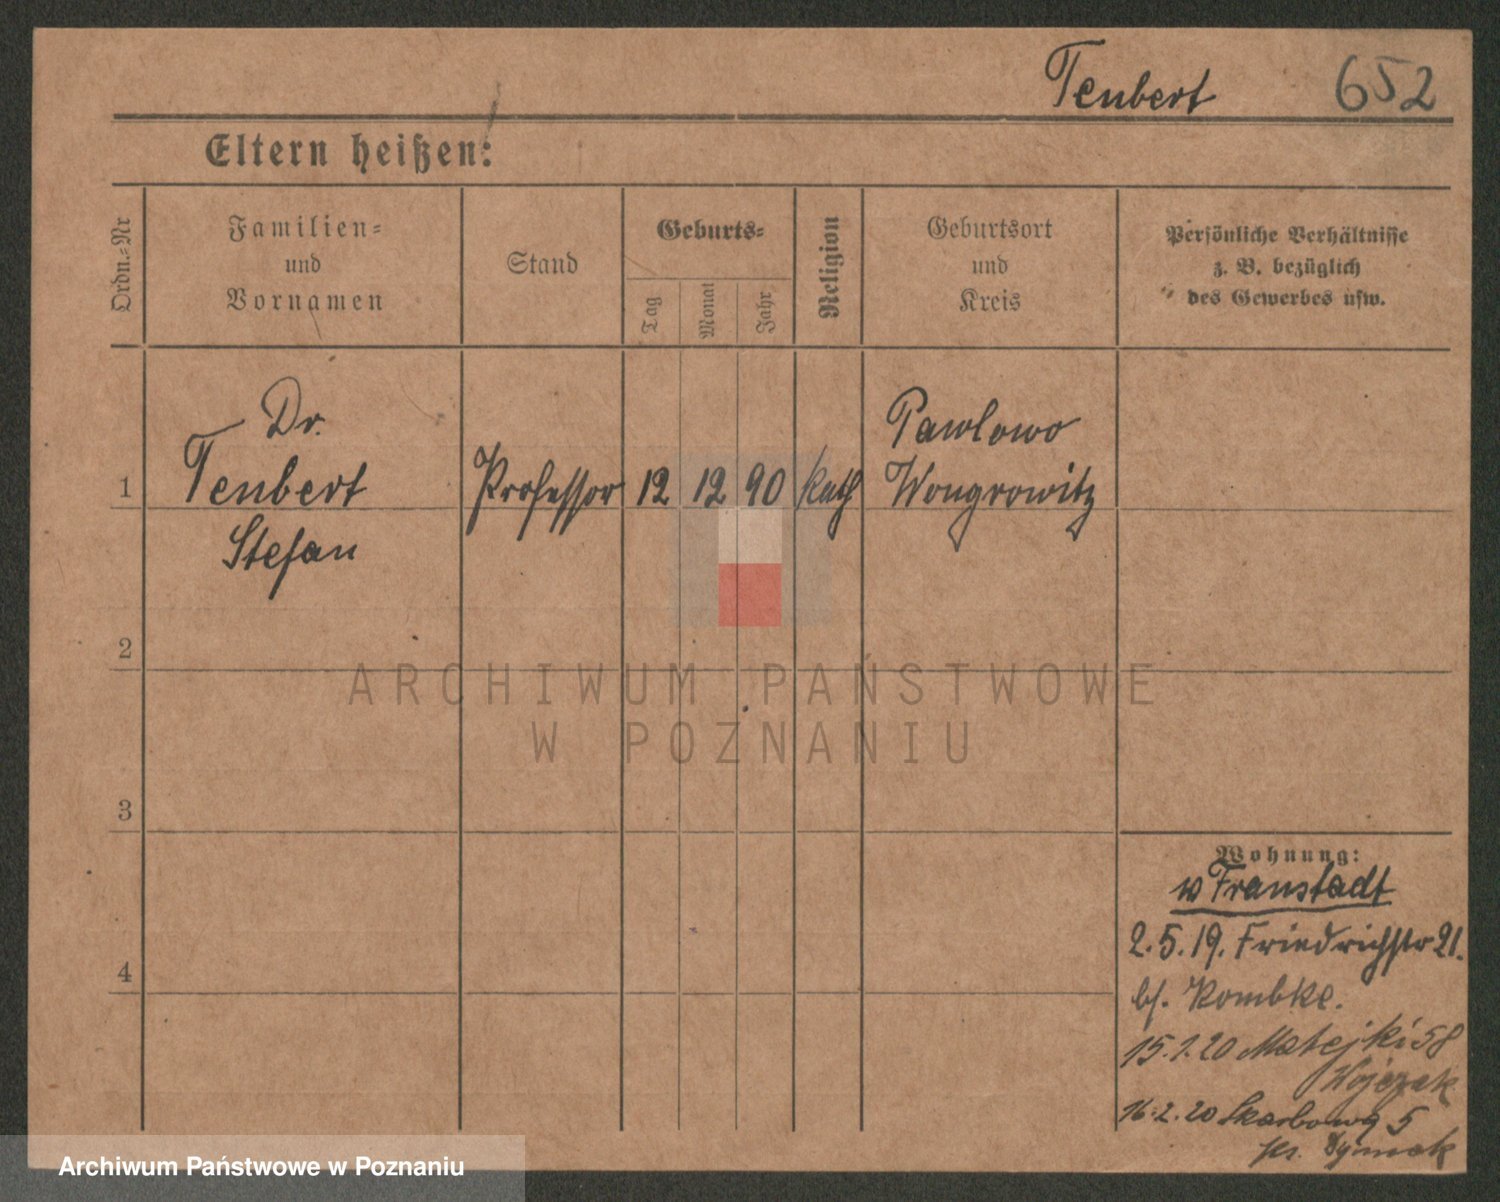 Teubert 652
Eltern heißen:
Ordn.-Nr
Familien-
und
Vornamen
Stand
Geburts-
Tag
Monat
Jahr
Religion
Geburtsort
und
Kreis
Persönliche Verhältnisse
z. B. bezüglich
des Gewerbes usw.
Dr.
1 Teubert Professor 12 12 90 kath Pawlowo
Stefan Wongrowitz
2
3
4
Wohnung:
Fraustadt
2.5.19. Friedrichstr 21.
bf. Rombke.
15.1.20 Matejki 58
Wojczak
16.2.20 Skarbowa 5
ARCHIWUM PAŃSTWOWE
W POZNANIU
Archiwum Państwowe w Poznaniu